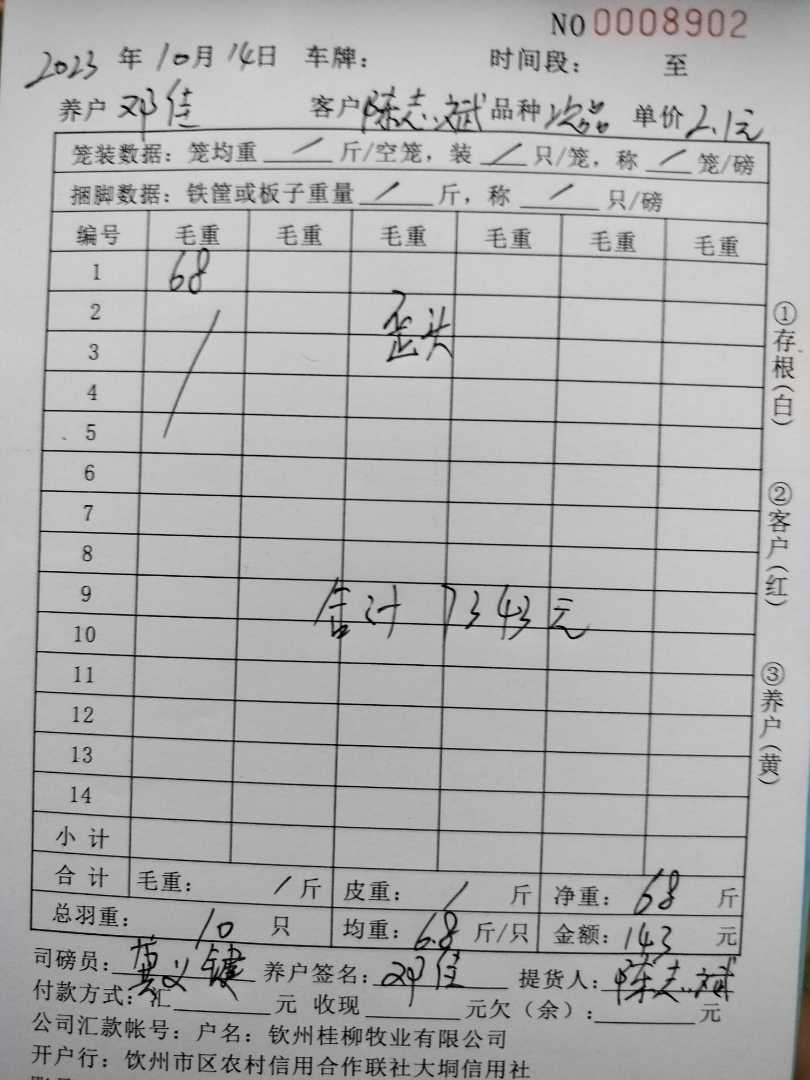 NO 0008902
2023 年 10 月 14 日 车牌： 时间段： 至
养户 邓佳 客户 陈志斌 品种 次品 单价 2.1元
笼装数据：笼均重 / 斤/空笼，装 / 只/笼，称 / 笼/磅
捆脚数据：铁筐或板子重量 / 斤，称 / 只/磅
编号 毛重 毛重 毛重 毛重 毛重 毛重
1 68
2
3 歪头
4
5
6
7
8
9
合计 7343元
10
11
12
13
14
小计
合计 毛重： / 斤 皮重： / 斤 净重： 68 斤
总羽重： 10 只 均重： 6.8 斤/只 金额： 143 元
司磅员： 义键 养户签名： 邓佳 提货人： 陈志斌
付款方式：汇 元 收现 元欠（余）： 元
公司汇款帐号：户名：钦州桂柳牧业有限公司
开户行：钦州市区农村信用合作联社大垌信用社
①存根（白）
②客户（红）
③养户（黄）